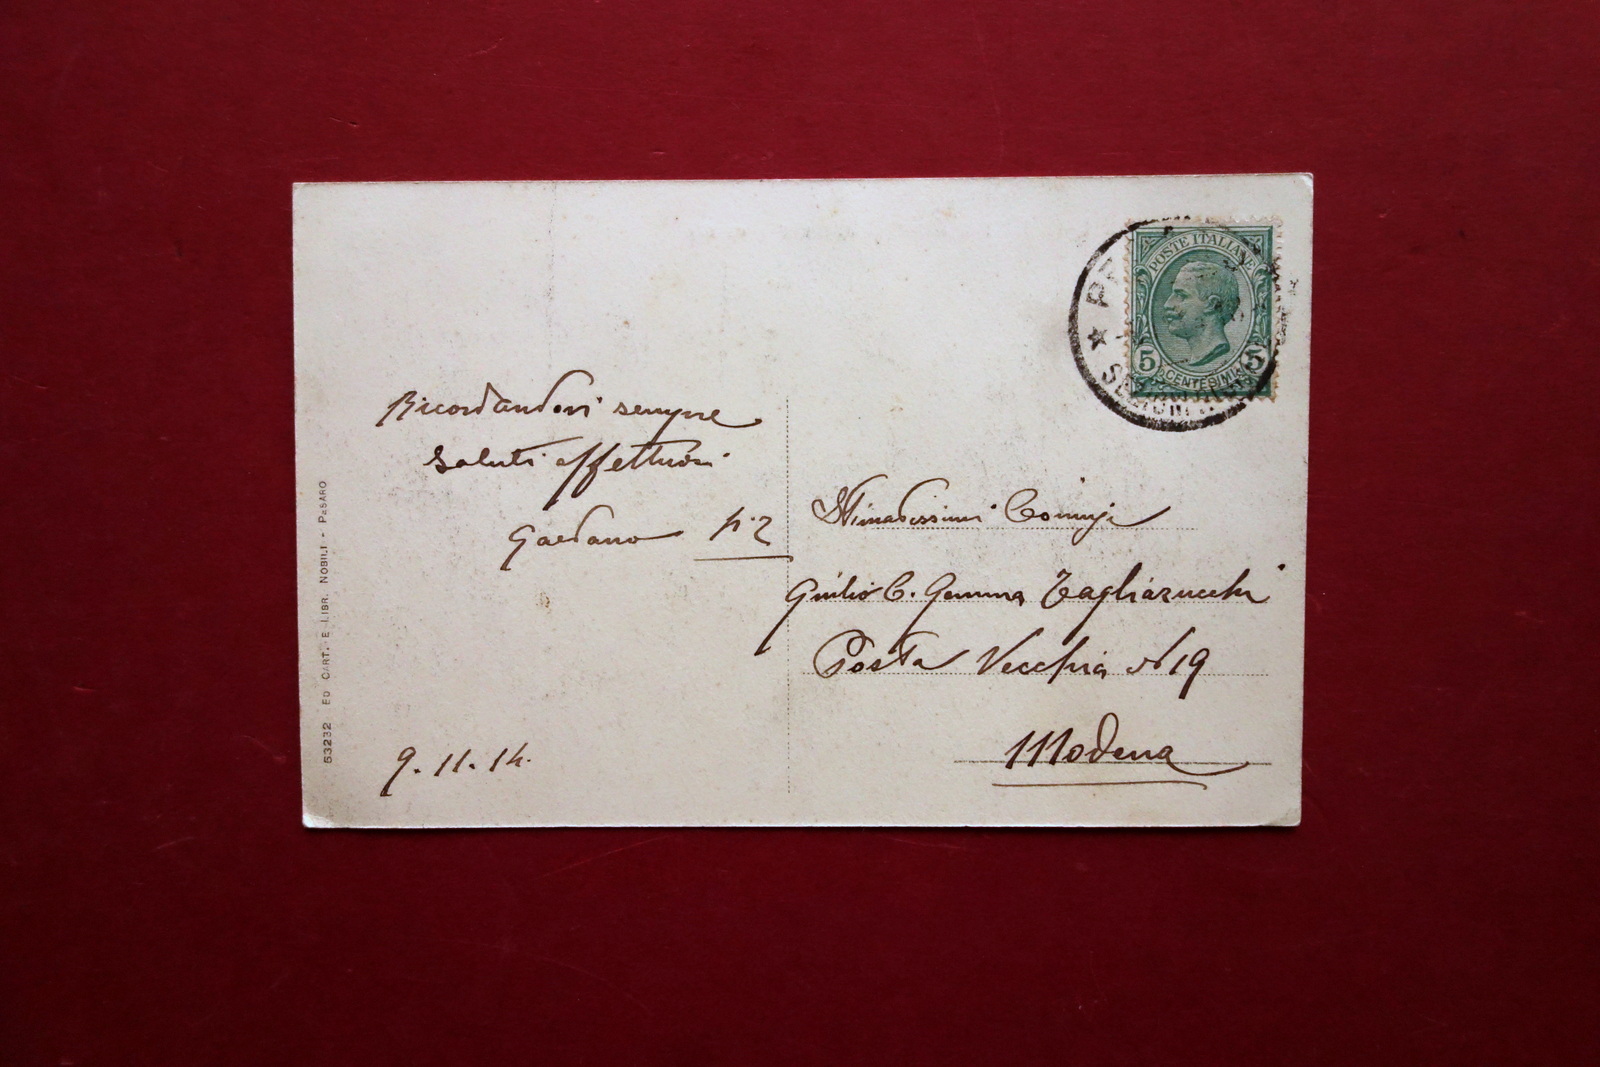 POSTE ITALIANE
5 CENTESIMI 5
Ricordandovi sempre
saluti affettuosi
Gaetano
9.11.14.
Stimatissimi Coniugi
Giulio C. Gemma Tagliazucchi
Posta Vecchia N 19
Modena
53232 ED CART. E LIBR. NOBILI - PESARO